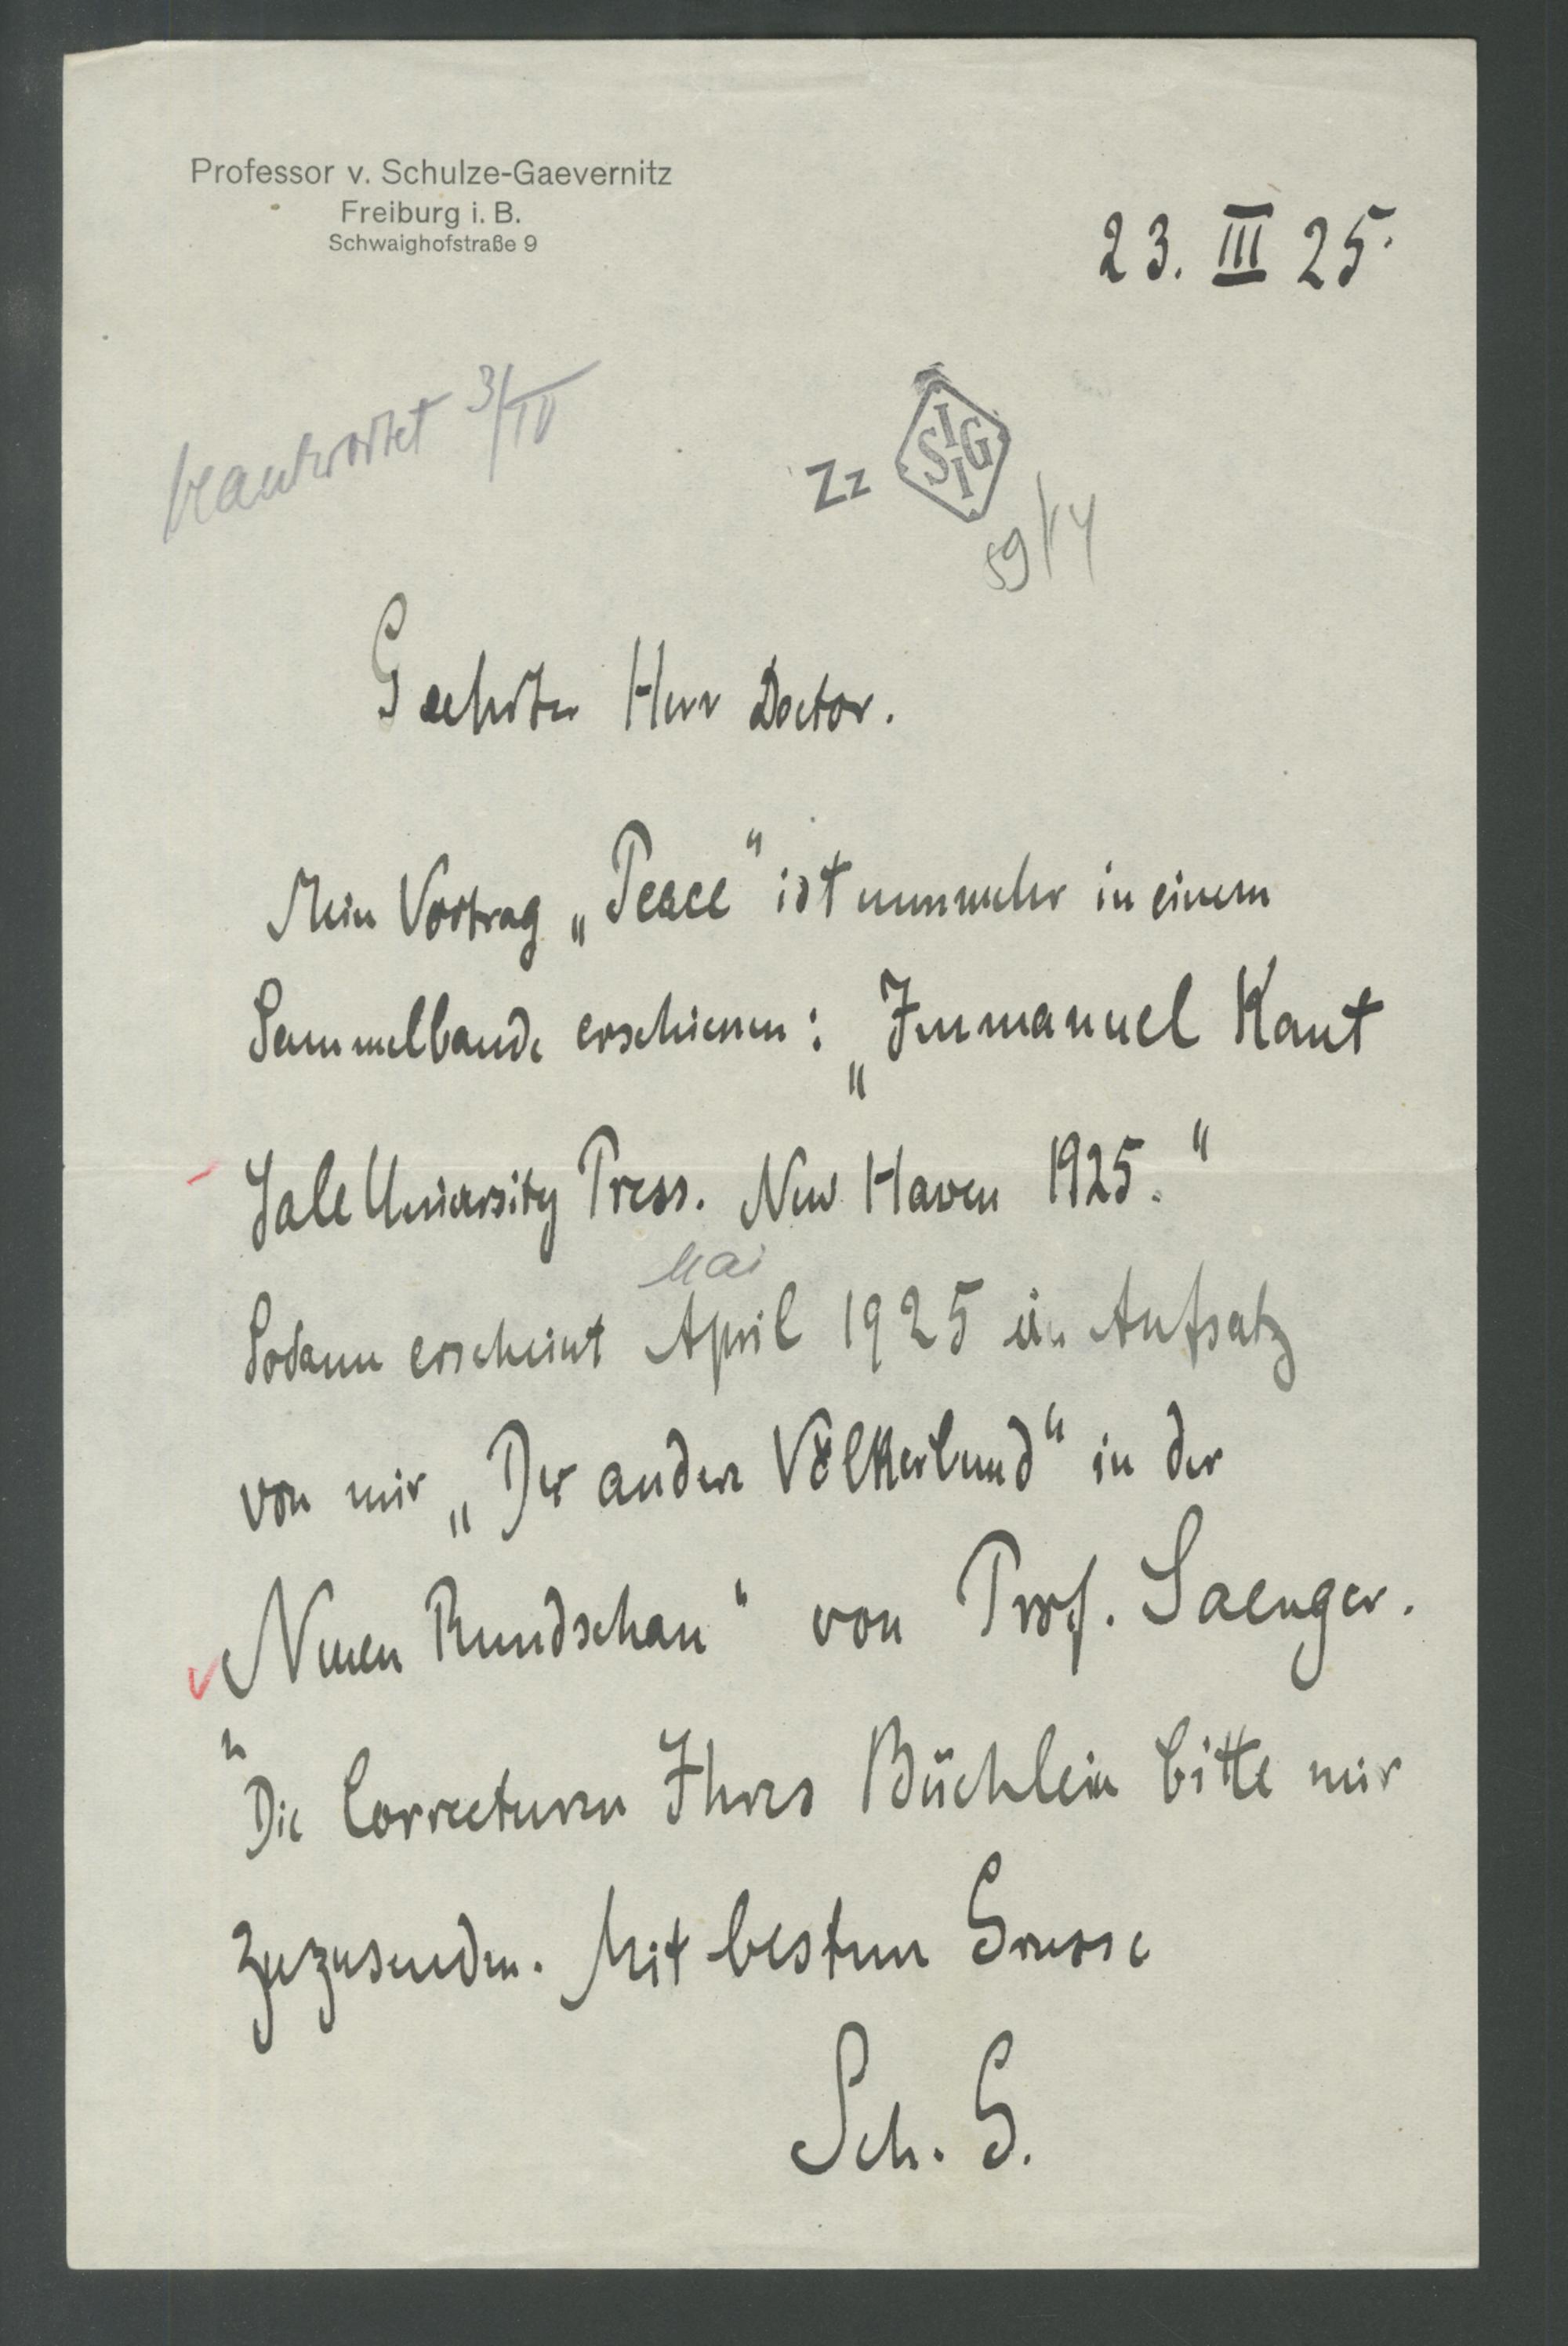 Professor v. Schulze-Gaevernitz
Freiburg i. B.
Schwaighofstraße 9
23. III 25.
beantwortet 3/IV
Zz SIGI
59/14
Geehrter Herr Doctor.
Mein Vortrag „Peace“ ist nunmehr in einem
Sammelbande erschienen: „Immanuel Kant
Yale University Press. New Haven 1925.“
Mai
Sodann erscheint April 1925 ein Aufsatz
von mir „Der andere Völkerbund“ in der
„Neuen Rundschau“ von Prof. Saenger.
Die Correcturen Ihres Büchlein bitte mir
zuzusenden. Mit bestem Grusse
Sch. G.